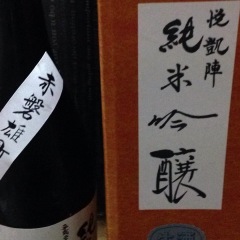 悦凱陣
純米吟醸
赤磐雄町
純